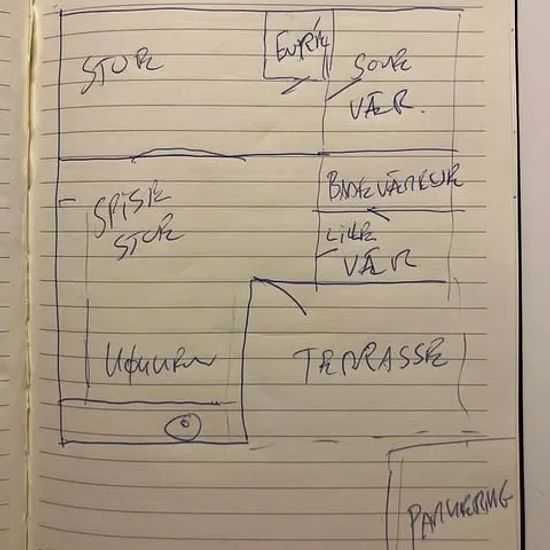 STUE
ENTRÉ
SOVE
VÆR.
SPISE
STUE
BADEVÆRELSE
LILLE
VÆR
TERRASSE
PARKERING